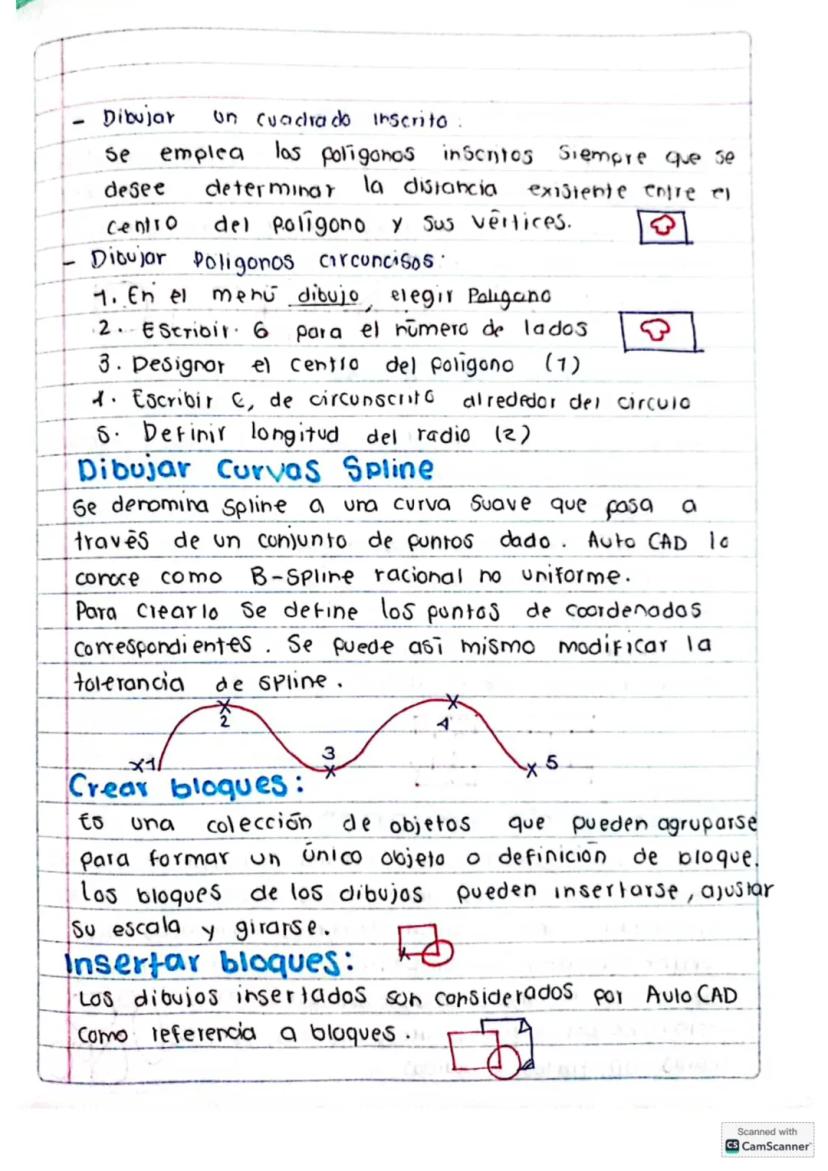 - Dibujar un cuadrado inscrito.
Se emplea los polígonos inscritos siempre que se
desee determinar la distancia existente entre el
centro del polígono y sus vértices.
- Dibujar Poligonos circuncisos:
1. En el menú dibujo, elegir Poligano
2. Escribir 6 para el número de lados
3. Designar el centro del polígono (1)
4. Escribir C, de circunscrito alrededor del circulo
5. Definir longitud del radio (2)
Dibujar Curvas Spline
Se denomina spline a una curva suave que pasa a
través de un conjunto de puntos dado. Auto CAD lo
conoce como B-Spline racional no uniforme.
Para crearlo se define los puntos de coordenadas
correspondientes. Se puede así mismo modificar la
tolerancia de spline.
x1 2 3 4 5
Crear bloques:
Es una colección de objetos que pueden agruparse
para formar un único objeto o definición de bloque.
Los bloques de los dibujos pueden insertarse, ajustar
su escala y girarse.
Insertar bloques:
Los dibujos insertados son considerados por Auto CAD
como referencia a bloques.
Scanned with
CS CamScanner